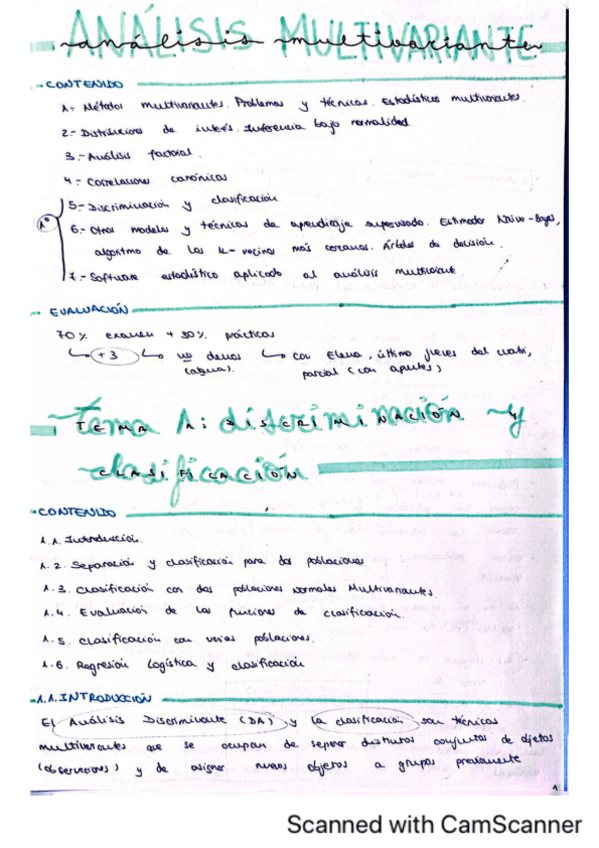 ANÁLISIS MULTIVARIANTE
análisis multivariante
- CONTENIDO
1.- Métodos multivariantes. Problemas y técnicas. Estadísticos multivariantes.
2.- Distribuciones de interés. Inferencia bajo normalidad.
3.- Análisis factorial.
4.- Correlaciones canónicas.
5.- Discriminación y clasificación
6.- Otros modelos y técnicas de aprendizaje supervisado. Estimador Naive-Bayes,
algoritmo de los k-vecinos más cercanos. Árboles de decisión.
7.- Software estadístico aplicado al análisis multivariante.
- EVALUACIÓN
70% examen + 30% prácticas
+3 no con Elena, último jueves del cuatri,
parcial (con apuntes)
Tema 1: discriminación y
TEMA 1: DISCRIMINACIÓN
clasificación
CLASIFICACIÓN
- CONTENIDO
1.1. Introducción.
1.2. Separación y clasificación para dos poblaciones
1.3. Clasificación con dos poblaciones normales Multivariantes.
1.4. Evaluación de las funciones de clasificación.
1.5. Clasificación con varias poblaciones.
1.6. Regresión Logística y clasificación
- 1.1. INTRODUCCIÓN
El Análisis Discriminante (DA) y la clasificación son técnicas
multivariantes que se ocupan de separar distintos conjuntos de objetos
(observaciones) y de asignar nuevos objetos a grupos previamente
1
Scanned with CamScanner